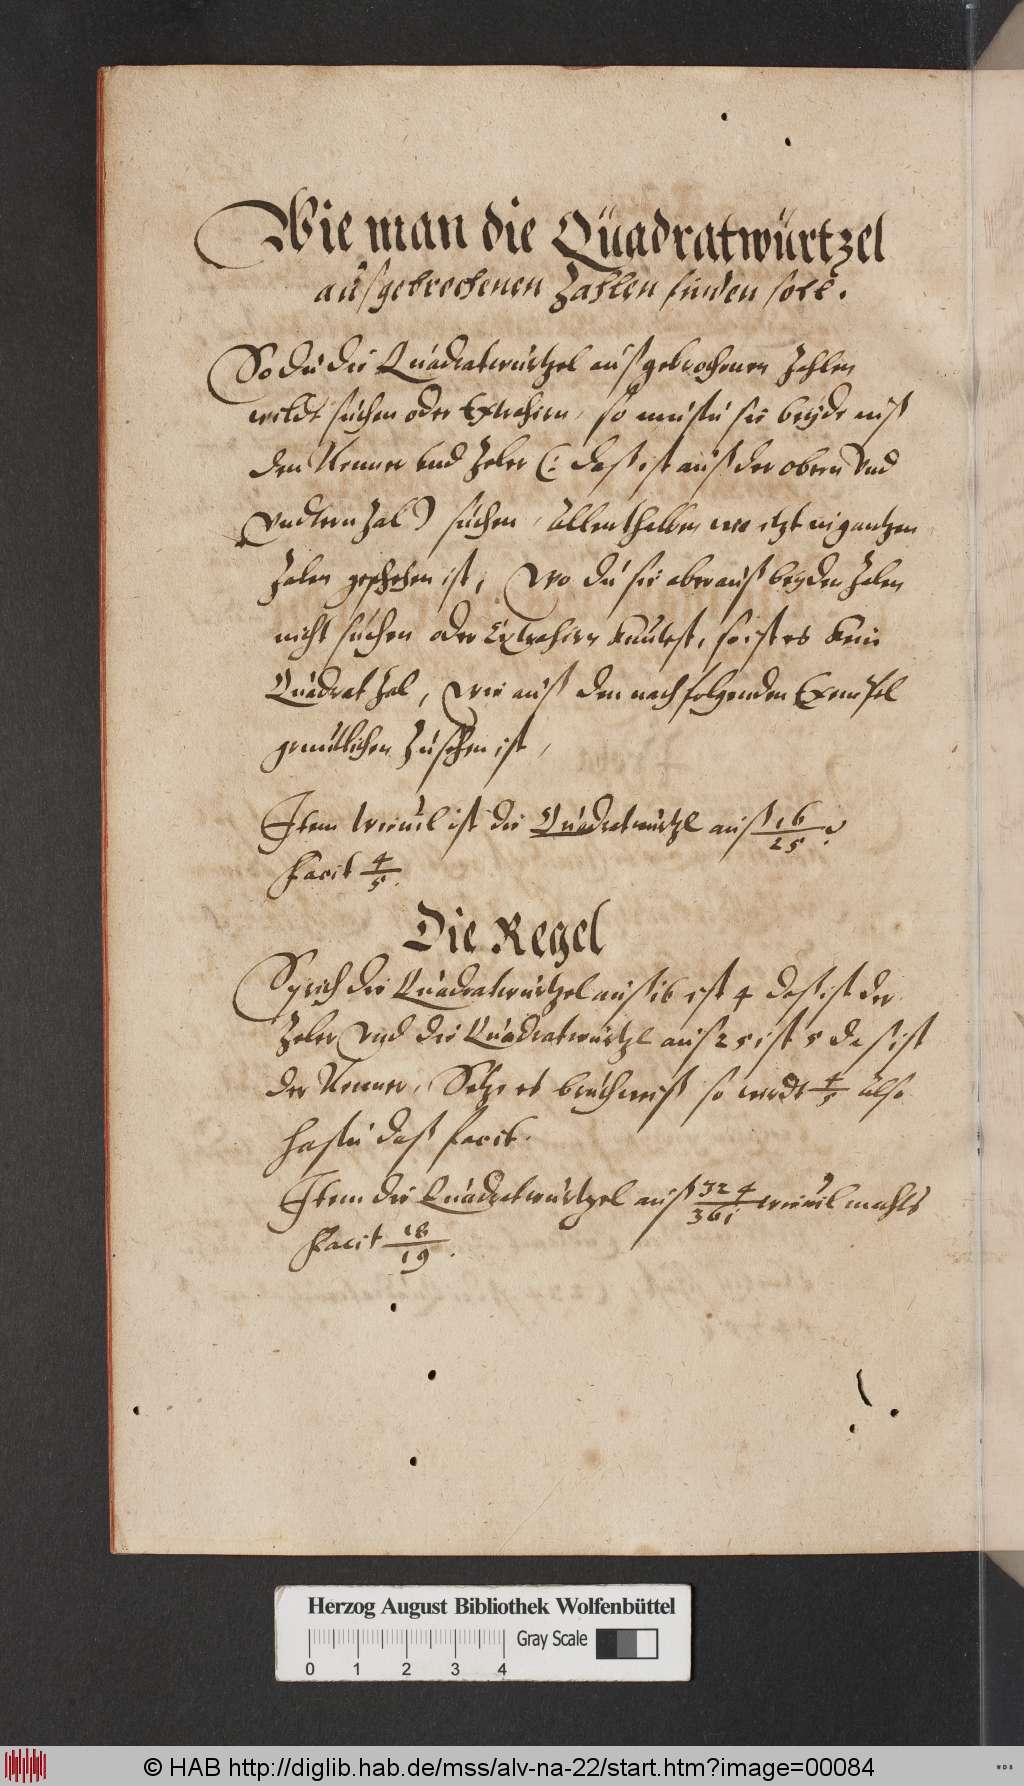 Wie man die Quadratwürtzel
auß gebrochenen Zahlen finden soll.
So du die Quadratwürtzel auß gebrochenen Zahlen
wildt suchen oder Extrahirn, so mustu sie beyde auß
den Nenner vnd Zeler (: daß ist auß der obern vnd
vndtern Zal) suchen, allenthalben wie itzt in gantzen
Zalen geschehen ist, Wo du sie aber auß beyden Zalen
nicht suchen oder Extrahirn kanst, so ist es kein
Quadrat Zal, Wie auß den nachfolgenden Exempel
zusehen ist,
Item Wieuil ist die Quadratwürtzl auß 16/25 ?
Facit 4/5.
Die Regel
Sprich die Quadratwürtzel auß 16 ist 4 das ist der
Zeler Vnd die Quadratwürtzl auß 25 ist 5 das ist
der Nenner, Setze es bruchweiß so wirdt 4/5 also
hastu daß facit.
Item die Quadratwürtzel auß 324/361 wieuil machts
Facit 18/19.
Herzog August Bibliothek Wolfenbüttel
Gray Scale
0 1 2 3 4
© HAB http://diglib.hab.de/mss/alv-na-22/start.htm?image=00084